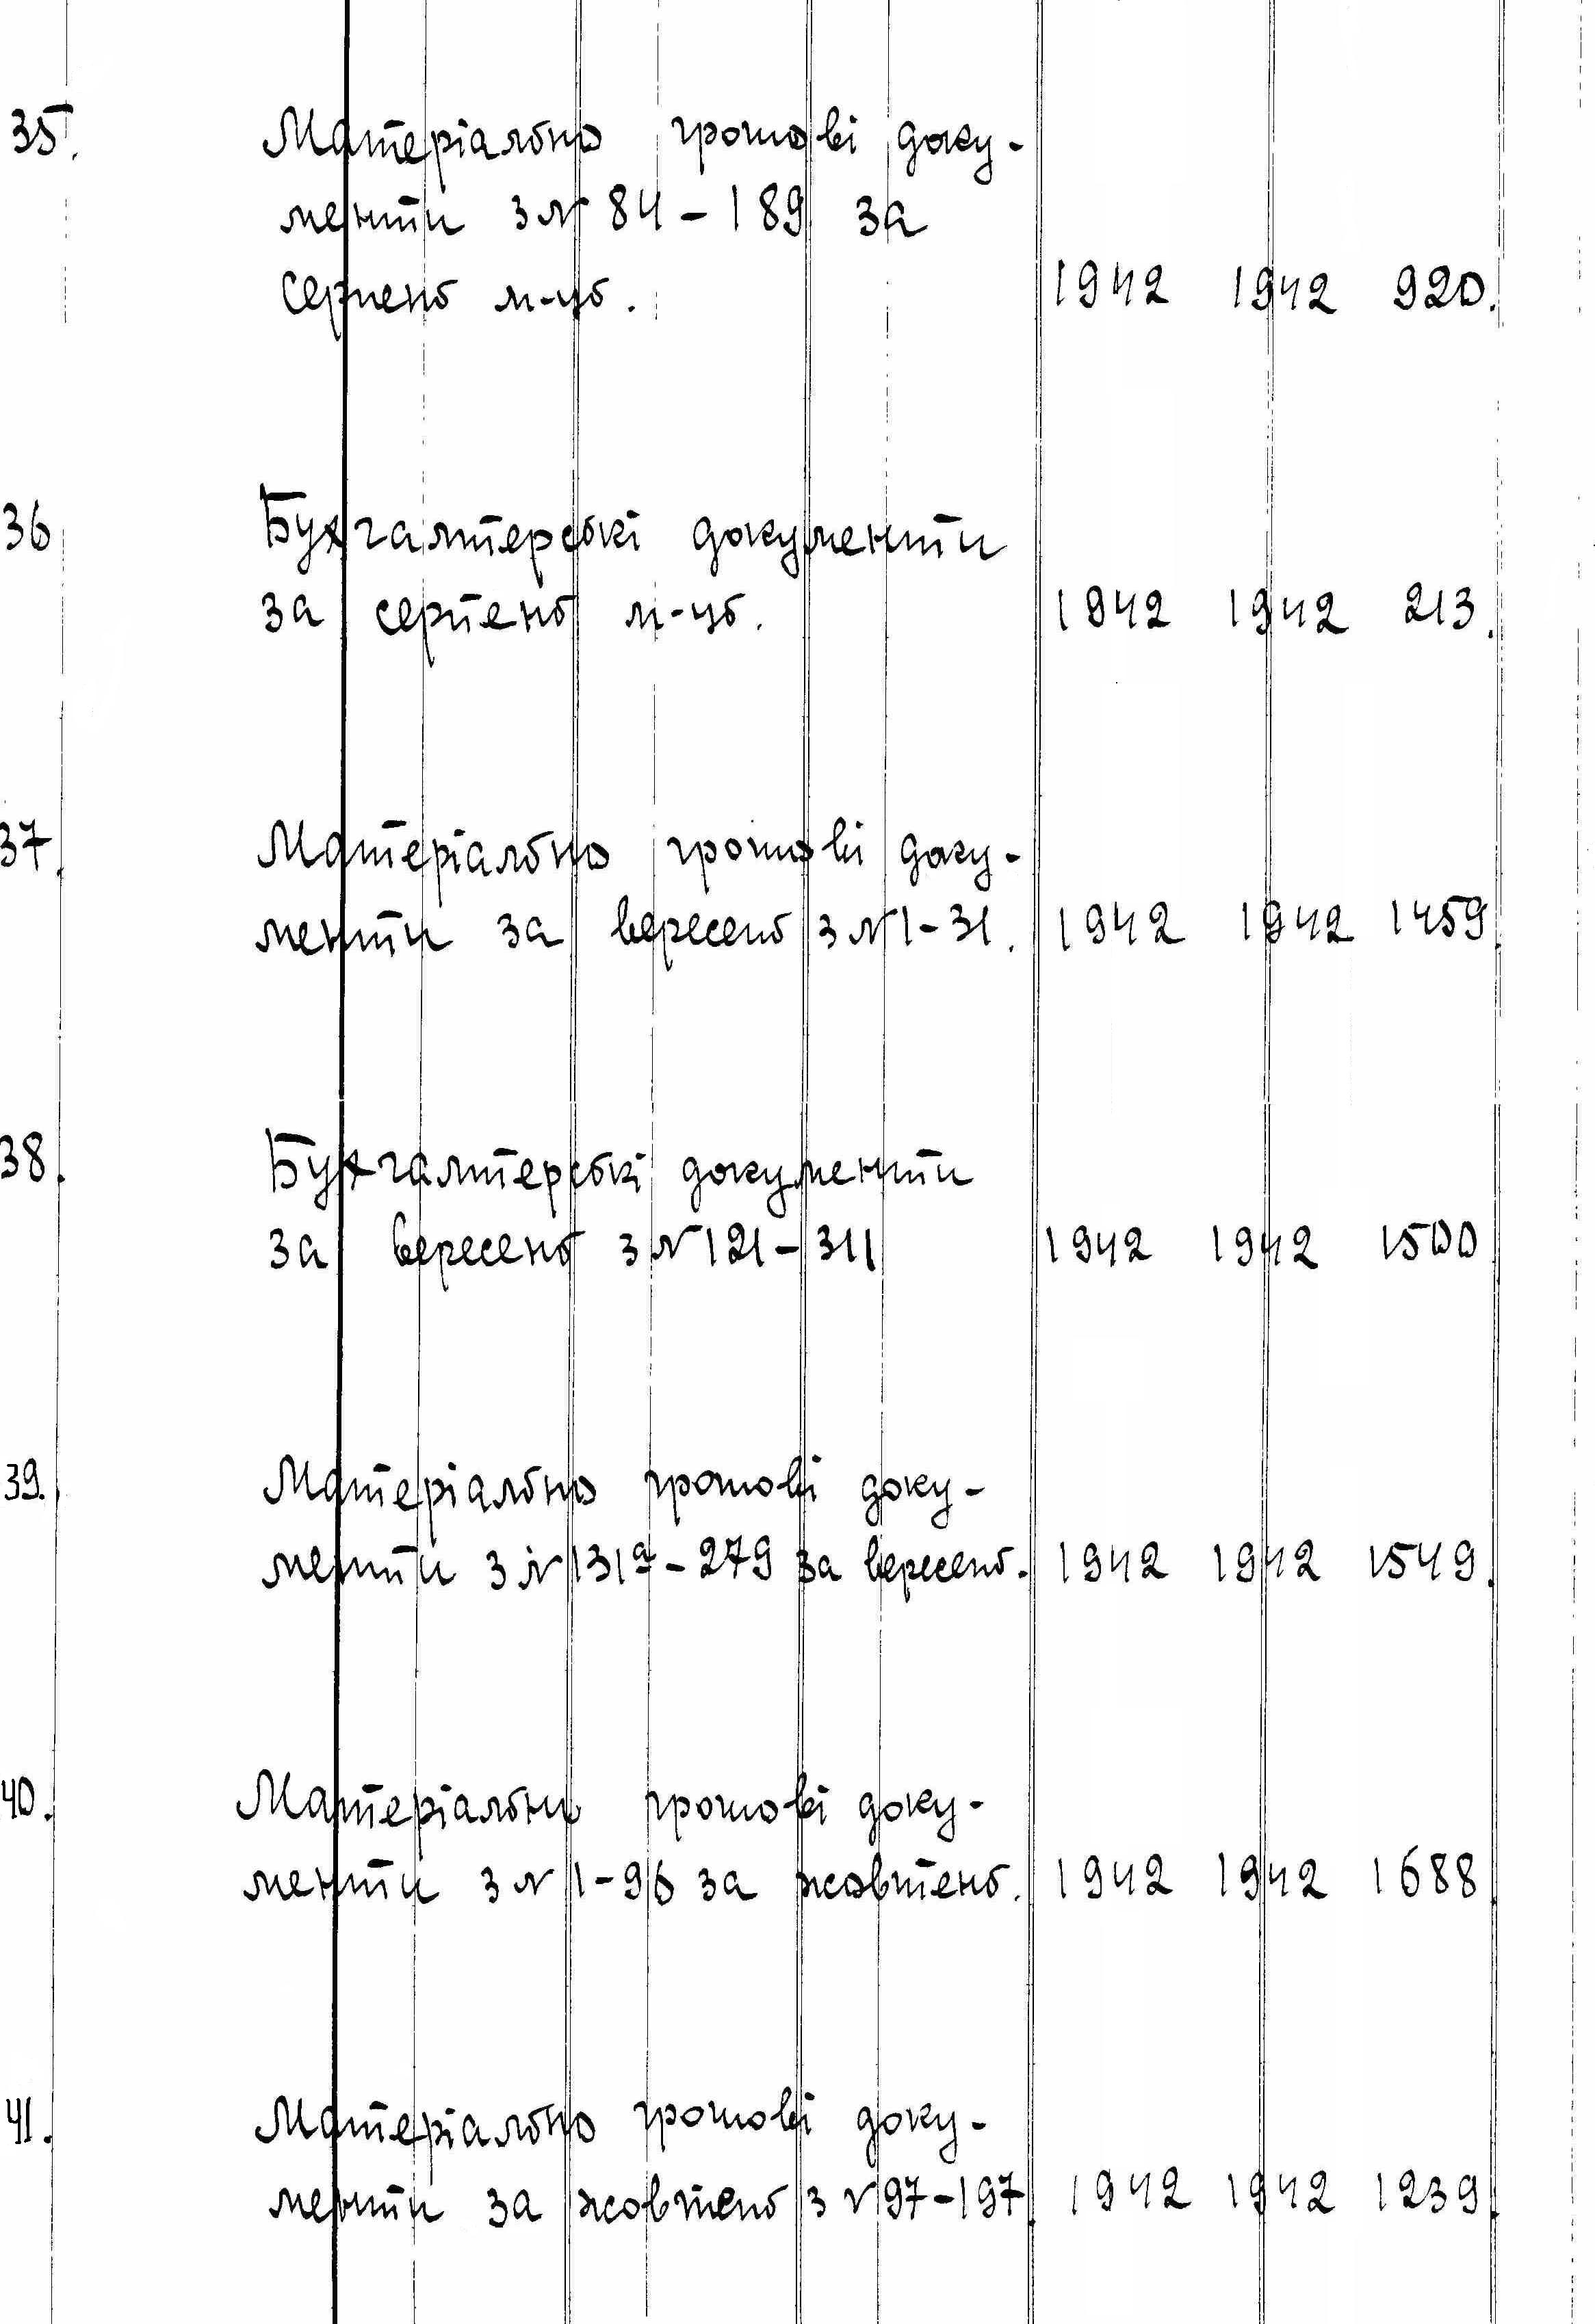 35. Матеріально грошові доку-
менти з № 84-189 за
серпень м-ць. 1942 1942 920.
36 Бухгалтерські документи
за серпень м-ць. 1942 1942 213.
37. Матеріально грошові доку-
менти за вересень з № 1-31. 1942 1942 1459.
38. Бухгалтерські документи
за вересень з № 121-311 1942 1942 1500
39. Матеріально грошові доку-
менти з № 131а-279 за вересень. 1942 1942 1549.
40. Матеріальни грошові доку-
менти з № 1-96 за жовтень. 1942 1942 1688
41. Матеріально грошові доку-
менти за жовтень з № 97-197. 1942 1942 1239.